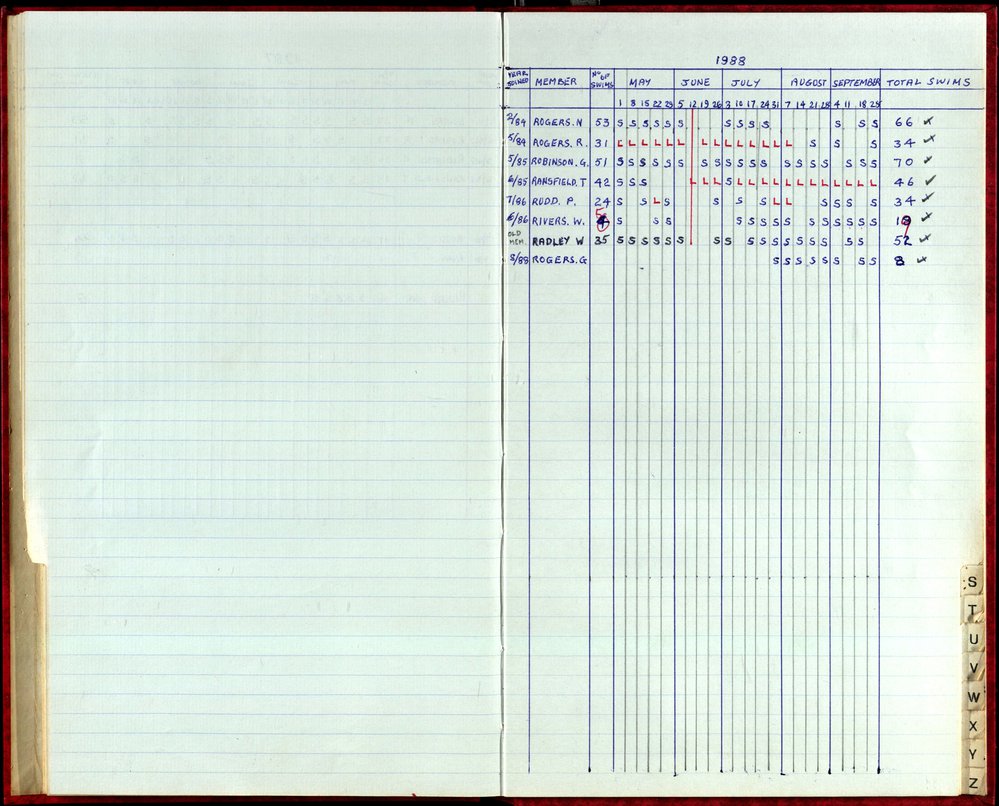 1988
YEAR JOINED MEMBER Nº OF SWIMS MAY JUNE JULY AUGUST SEPTEMBER TOTAL SWIMS
1 8 15 22 29 5 12 19 26 3 10 17 24 31 7 14 21 28 4 11 18 25
2/84 ROGERS. N 53 S S S S S S S S S S S S S 66
5/84 ROGERS. R. 31 L L L L L L L L L L L L L L L S S S 34
5/85 ROBINSON. G. 51 S S S S S S S S S S S S S S S S S S S 70
6/85 RANSFIELD. T 42 S S S L L L S L L L L L L L L L L L L 46
7/86 RUDD. P. 24 S S L S S S S L L S S S S 34
6/86 RIVERS. W. 5 S S S S S S S S S S S S S S 19
OLD MEM. RADLEY W 35 S S S S S S S S S S S S S S S S S 52
8/88 ROGERS. G S S S S S S S S 8
S
T
U
V
W
X
Y
Z